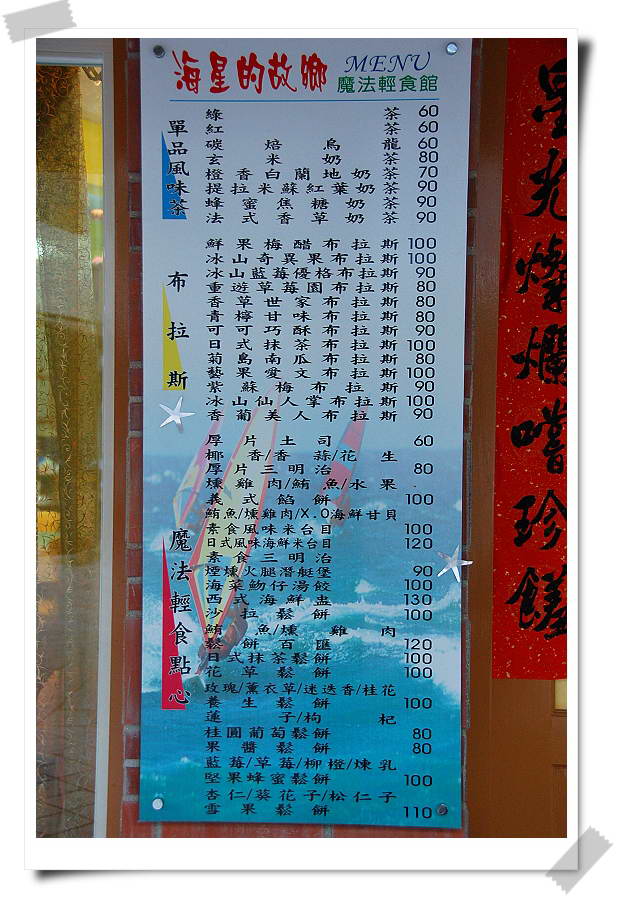 海星的故鄉 MENU
魔法輕食館
單品風味茶
綠茶 60
紅茶 60
碳焙烏龍 60
玄米奶茶 80
橙香白蘭地奶茶 70
提拉米蘇紅葉奶茶 90
蜂蜜焦糖奶茶 90
法式香草奶茶 90
布拉斯
鮮果梅醋布拉斯 100
冰山奇異果布拉斯 100
冰山藍莓優格布拉斯 90
重遊草莓園布拉斯 80
香草世家布拉斯 80
青檸甘味布拉斯 80
可可巧酥布拉斯 90
日式抹茶布拉斯 100
菊島南瓜布拉斯 80
藝果愛文布拉斯 100
紫蘇梅布拉斯 90
冰山仙人掌布拉斯 100
香葡美人布拉斯 90
魔法輕食點心
厚片土司 60
椰香/香蒜/花生
厚片三明治 80
燻雞肉/鮪魚/水果
義式餡餅 100
鮪魚/燻雞肉/X.O海鮮甘貝
素食風味米台目 100
日式風味海鮮米台目 120
素食三明治
煙燻火腿潛艇堡 90
海菜魩仔湯餃 100
西式海鮮盅 130
沙拉鬆餅 100
鮪魚/燻雞肉
鬆餅百匯 120
日式抹茶鬆餅 100
花草鬆餅 100
玫瑰/薰衣草/迷迭香/桂花
養生鬆餅 100
蓮子/枸杞
桂圓葡萄鬆餅 80
果醬鬆餅 80
藍莓/草莓/柳橙/煉乳
堅果蜂蜜鬆餅 100
杏仁/葵花子/松仁子
雪果鬆餅 110
星光燦爛嚐珍饈